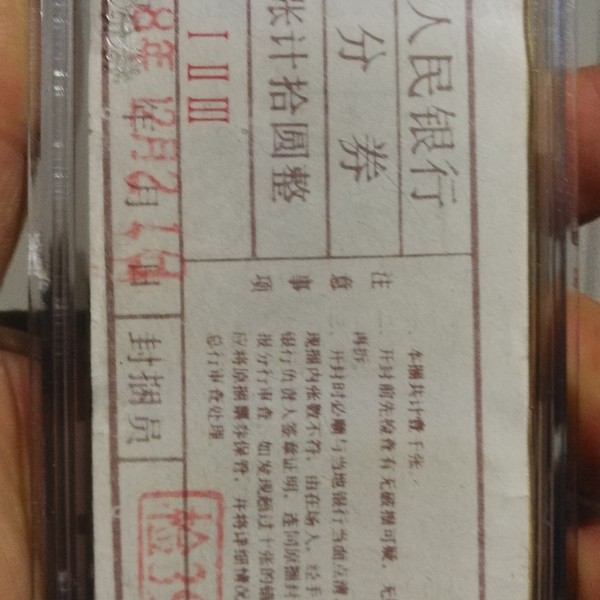 人民银行
分券
张计拾圆整
I II III
8年12月21日
封捆员
注意事项
一、本捆共计壹千张。
二、开封前先检查有无破损可疑，无
再拆
三、开封时必须与当地银行当面点清
现捆内张数不符，由在场人、经手
银行负责人签章证明，连同原捆封
报分行审查，如发现超过十张的错
应将原捆票券保管，并将详细情况
总行审查处理
检